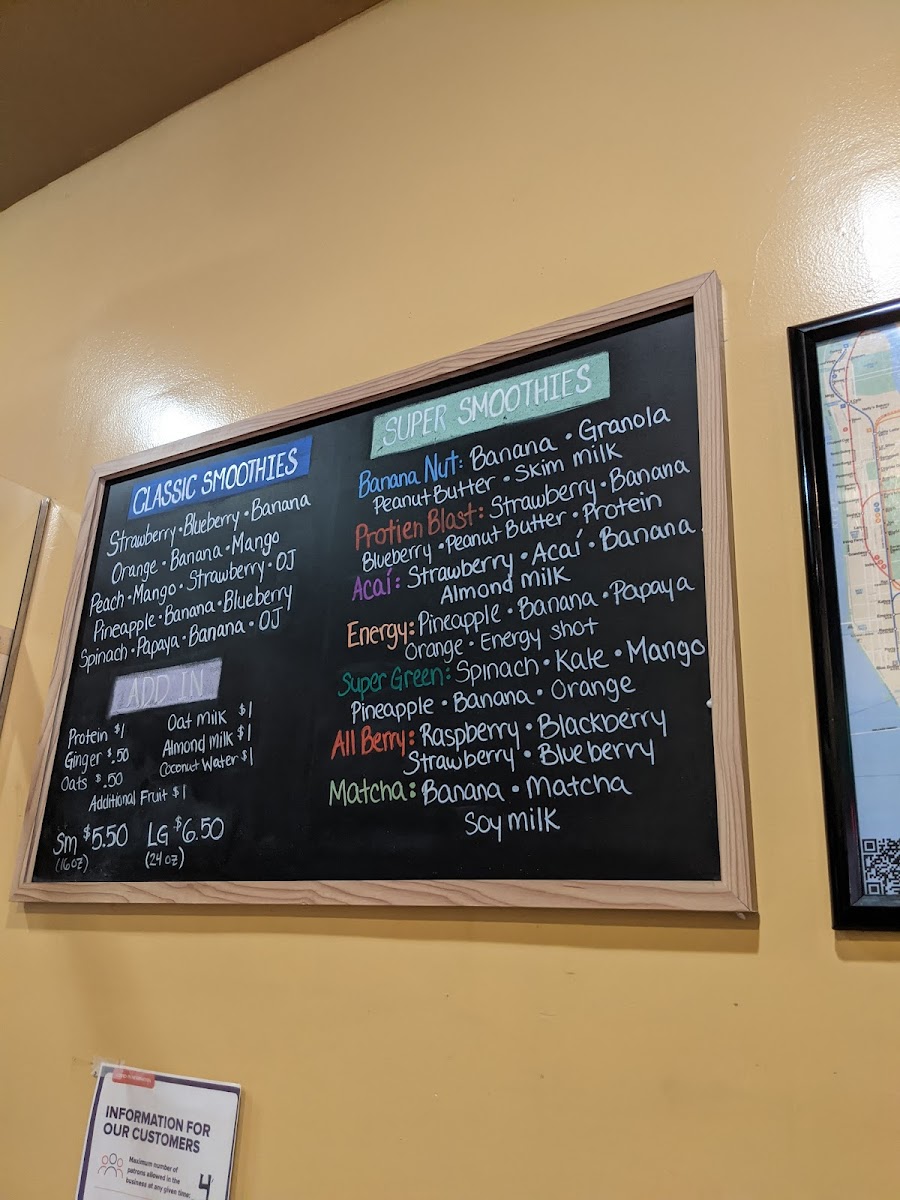 CLASSIC SMOOTHIES
Strawberry • Blueberry • Banana
Orange • Banana • Mango
Peach • Mango • Strawberry • OJ
Pineapple • Banana • Blueberry
Spinach • Papaya • Banana • OJ
ADD IN
Protein $1
Ginger $.50
Oats $.50
Oat Milk $1
Almond Milk $1
Coconut Water $1
Additional Fruit $1
Sm $5.50 LG $6.50
(16 oz) (24 oz)
SUPER SMOOTHIES
Banana Nut: Banana • Granola
Peanut Butter • Skim milk
Protien Blast: Strawberry • Banana
Blueberry • Peanut Butter • Protein
Acaí: Strawberry • Acaí • Banana
Almond milk
Energy: Pineapple • Banana • Papaya
Orange • Energy shot
Super Green: Spinach • Kale • Mango
Pineapple • Banana • Orange
All Berry: Raspberry • Blackberry
Strawberry • Blueberry
Matcha: Banana • Matcha
Soy milk
INFORMATION FOR
OUR CUSTOMERS
Maximum number of
patrons allowed in the
business at any given time:
4